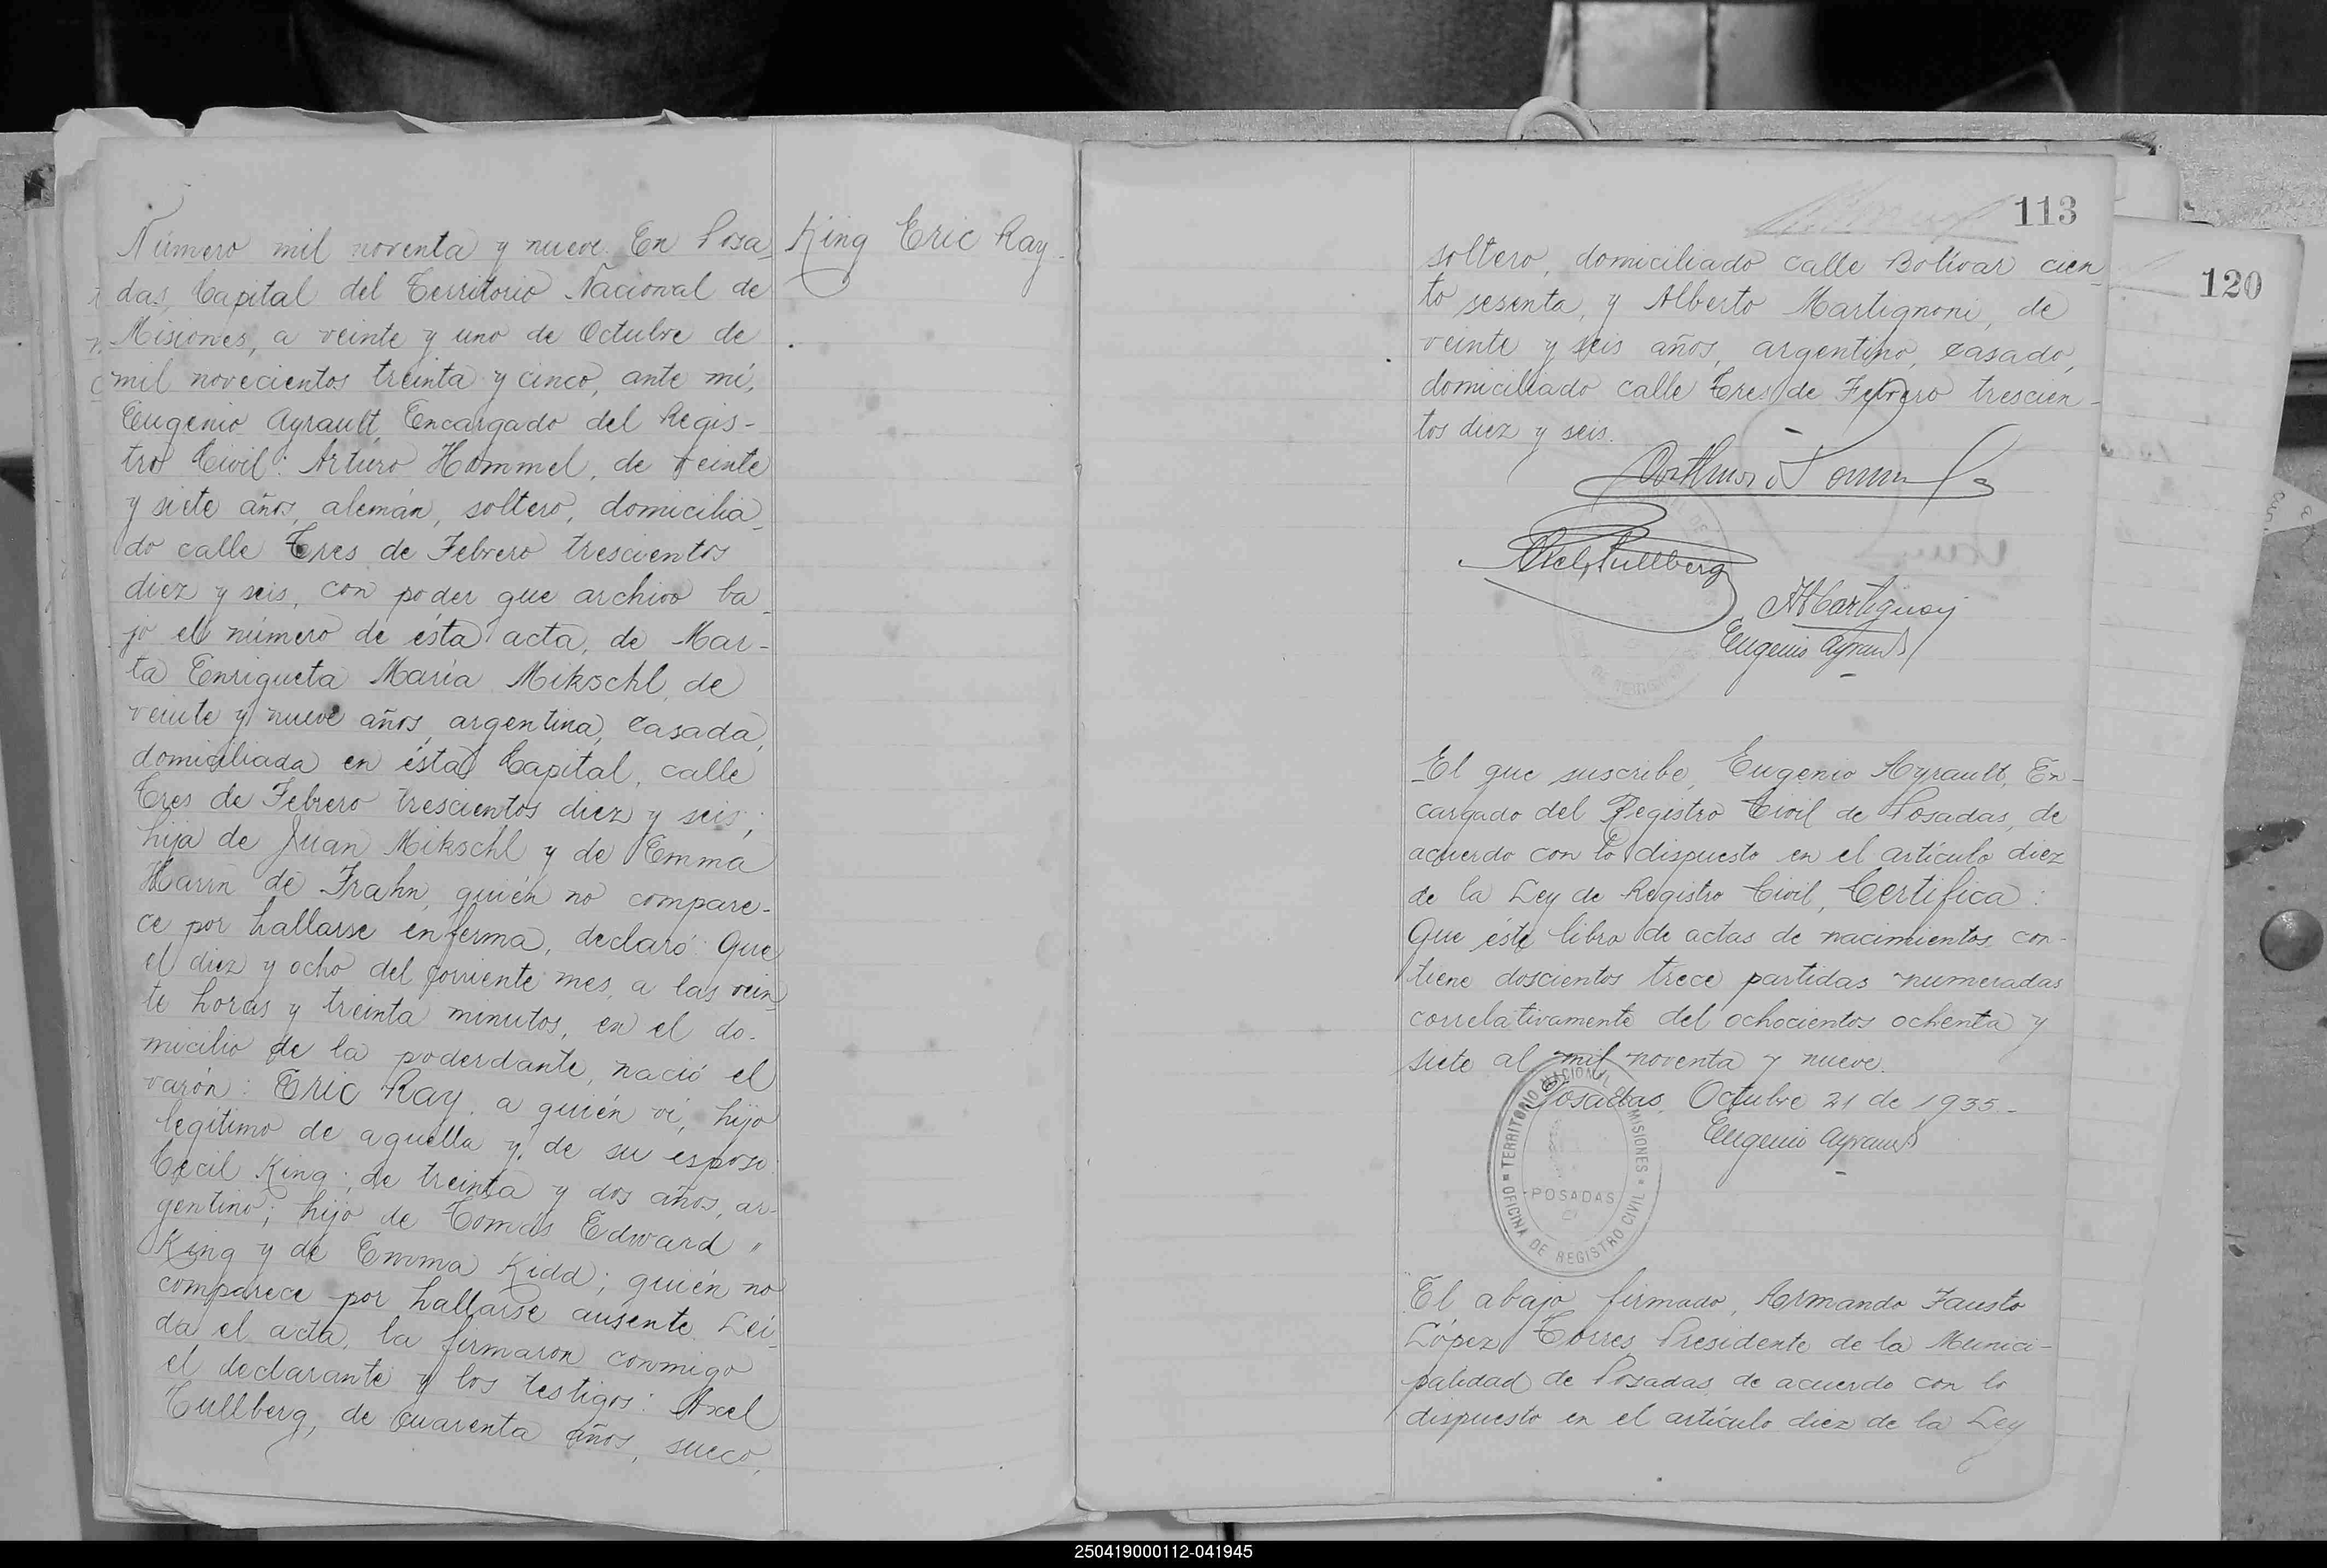 Número mil noventa y nueve. En Posa-
das, Capital del Territorio Nacional de
Misiones, a veinte y uno de Octubre de
mil novecientos treinta y cinco, ante mí,
Eugenio Ayrault, Encargado del Regis-
tro Civil: Arturo Hommel, de veinte
y siete años, alemán, soltero, domicilia-
do calle Tres de Febrero trescientos
diez y seis, con poder que archivo ba-
jo el número de ésta acta, de Mar-
ta Enriqueta María Mikschl, de
veinte y nueve años, argentina, casada,
domiciliada en ésta Capital, calle
Tres de Febrero trescientos diez y seis;
hija de Juan Mikschl y de Emma
Harin de Frahn, quién no compare-
ce por hallarse enferma, declaró: Que
el diez y ocho del corriente mes, a las vein-
te horas y treinta minutos, en el do-
micilio de la poderdante, nació el
varón: Eric Ray, a quién ví, hijo
legítimo de aquella y de su esposo
Cecil King; de treinta y dos años, ar-
gentino; hijo de Tomás Edward "
King y de Emma Kidd; quién no
comparece por hallarse ausente. Leí-
da el acta, la firmaron conmigo
el declarante y los testigos: Axel
Tullberg, de cuarenta años, sueco,
King Eric Ray.
113
soltero, domiciliado calle Bolívar cien-
to sesenta, y Alberto Martignoni, de
veinte y seis años, argentino, casado,
domiciliado calle Tres de Febrero trescien-
tos diez y seis.
Axel Tullberg
Eugenio Ayrault
El que suscribe, Eugenio Ayrault, En-
cargado del Registro Civil de Posadas, de
acuerdo con lo dispuesto en el artículo diez
de la Ley de Registro Civil, Certifica:
Que éste libro de actas de nacimientos con-
tiene doscientos trece partidas numeradas
correlativamente del ochocientos ochenta y
siete al mil noventa y nueve.
Posadas, Octubre 21 de 1935.-
Eugenio Ayrault
TERRITORIO NACIONAL DE MISIONES
POSADAS
OFICINA DE REGISTRO CIVIL
El abajo firmado, Armando Fausto
López Torres, Presidente de la Munici-
palidad de Posadas, de acuerdo con lo
dispuesto en el artículo diez de la Ley
120
250419000112-041945